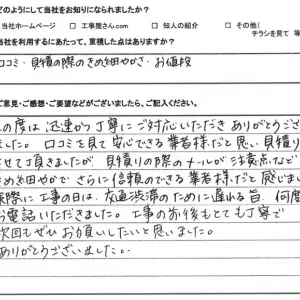 どのようにして当社をお知りになられましたか?
当社ホームページ □ 工事屋さん.com □ 知人の紹介 □ その他(
チラシを見て 等
当社を利用するにあたって、重視した点はありますか?
口コミ・見積の際のきめ細やかさ・お値段
ご意見・ご感想・ご要望などがございましたら、ご記入ください。
の度は迅速かつ丁寧にご対応いただきありがとうござ
ました。口コミを見て安心できる業者様だと思い見積り
させて頂きましたが、見積りの際のメールが注意点など
きめ細やかでさらに信頼のできる業者様だと感じまし
実際に工事の日は、交通渋滞のために遅れる旨、何度
お電話いただきました。工事の前後もとても丁寧で
次回もぜひお願いしたいと思いました。
ありがとうございました。